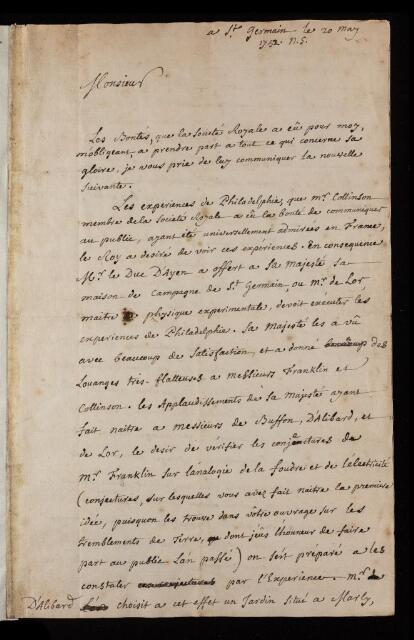 a St. Germain le 20 may
1752 N.S.
Monsieur
Les Bontés, que la Societé Royale a eü pour moy,
m'obligeant, a prendre part a tout ce qui concerne sa
gloire, je vous prie de luy communiquer la nouvelle
suivante.
Les experiences de Philadelphie, que mr. Collinson
membre de la Societé Royale a eü la bonté de communiquer
au public, ayant été universellement admirées en France,
le Roy a desiré de voir ces expériences. En consequence
Mr. le Duc D'Ayen a offert a sa majesté sa
maison de campagne de St. Germain, ou mr. de Lor,
maitre de physique experimentale, devoit executer les
experiences de Philadelphie. Sa majesté les a vü
avec beaucoup de satisfaction, et a donné des
Louanges tres-flatteuses a messieurs Franklin et
Collinson. les Applaudissements de sa majesté ayant
fait naitre a messieurs de Buffon, D'Alibard, et
de Lor, le desir de vérifier les conjectures de
mr. Franklin sur l'analogie de la foudre et de l'electricité
(conjectures, sur lesquelles vous avez fait naitre la premiere
idée, puisqu'on les trouve dans votre ouvrage sur les
tremblements de Terre, dont j'eüs l'honneur de faire
part au public L'an passé) on s'est preparé a les
constater par l'Experience. mr.
D'Alibard choisit a cet effet un Jardin situé a Marly,